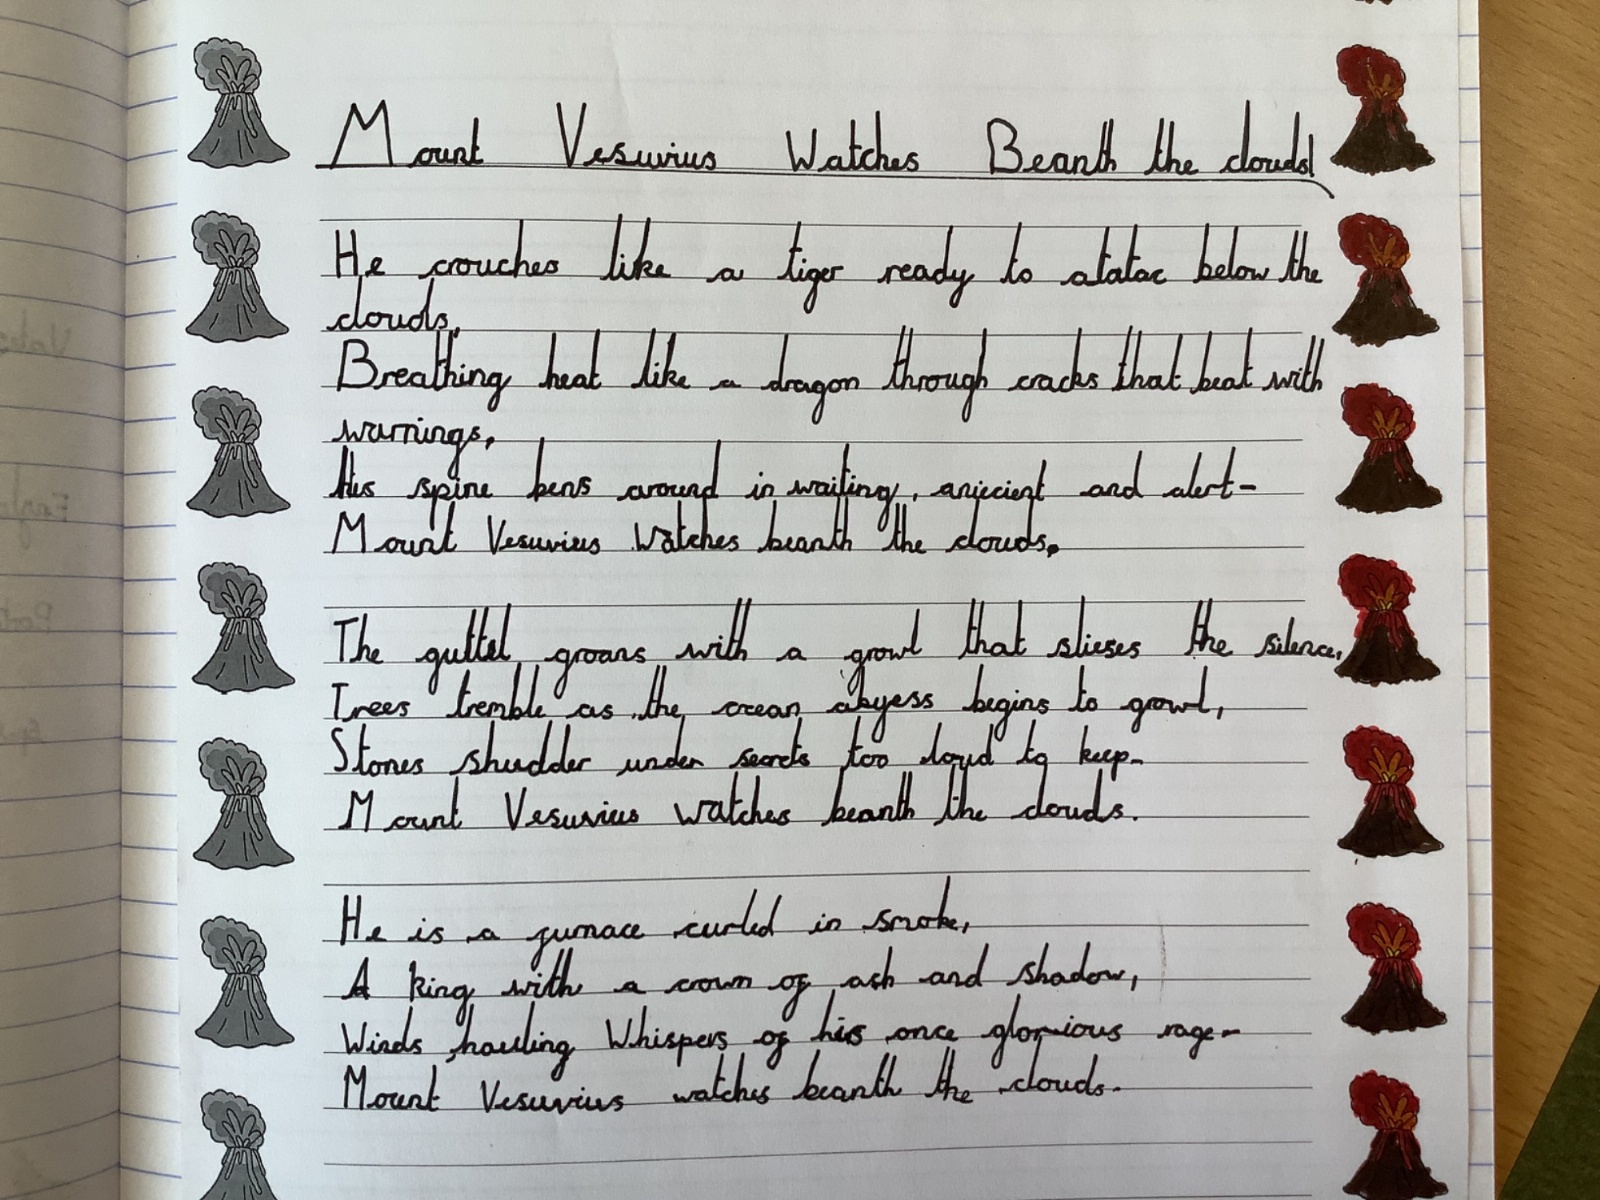 Mount Vesuvius Watches Beanth the clouds!
He crouches like a tiger ready to atatac below the
clouds,
Breathing heat like a dragon through cracks that beat with
warnings,
His spine bens around in waiting, anjecient and alert-
Mount Vesuvius Watches beanth the clouds.
The guttel groans with a growl that slieses the silence,
Trees tremble as the ocean abyess begins to growl,
Stones shudder under secrets too loud to keep-
Mount Vesuvius watches beanth the clouds.
He is a furnace curled in smoke,
A king with a crown of ash and shadow,
Winds howling Whispers of his once glorious rage-
Mount Vesuvius watches beanth the clouds.